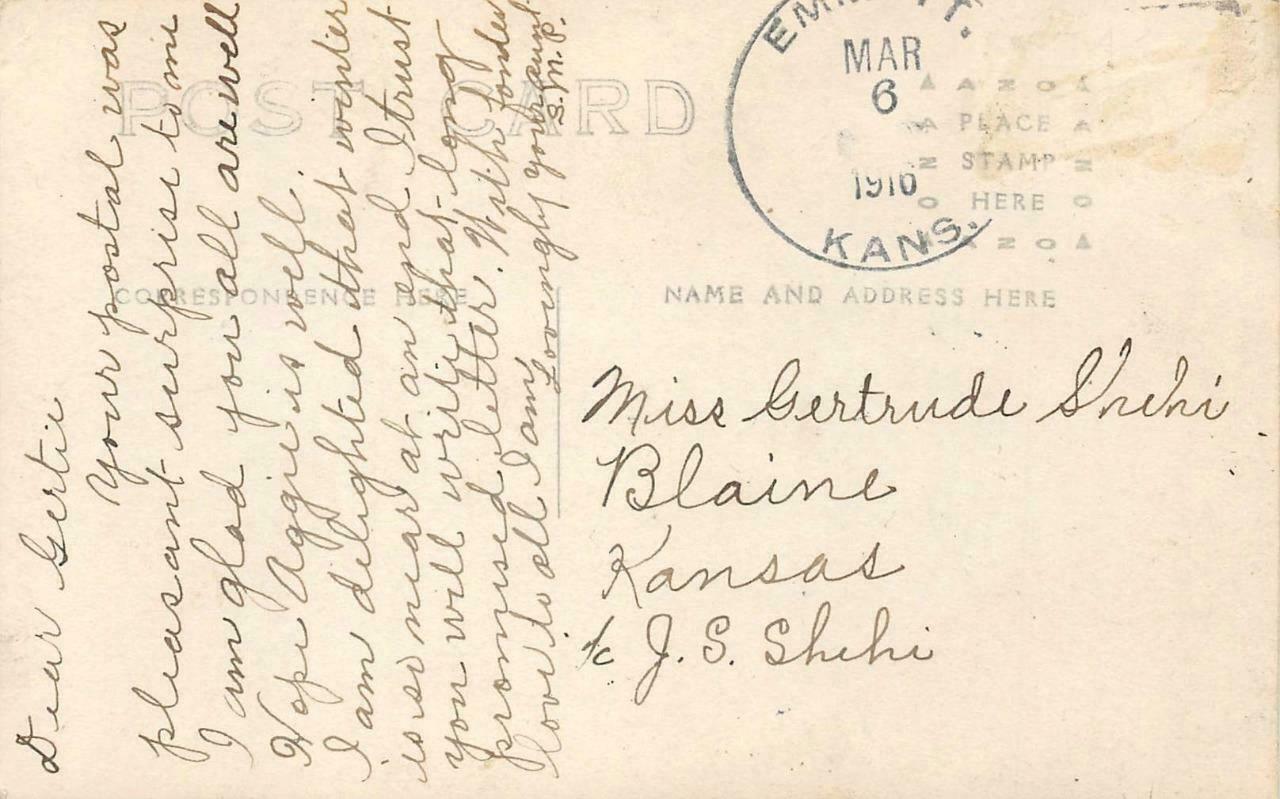 POST CARD
CORRESPONDENCE HERE
NAME AND ADDRESS HERE
MAR
6
1916
KANS.
PLACE
STAMP
HERE
AZO
Dear Gertie
Your postal was
pleasant surprise to me
I am glad you all are well
Hope Aggie is well.
I am delighted that winter
is so near at an end I trust
you will write that long
promised letter. With fondest
love to all I am
Lovingly Your aunt
S. M. P.
Miss Gertrude Shehi
Blaine
Kansas
c/o J. S. Shehi